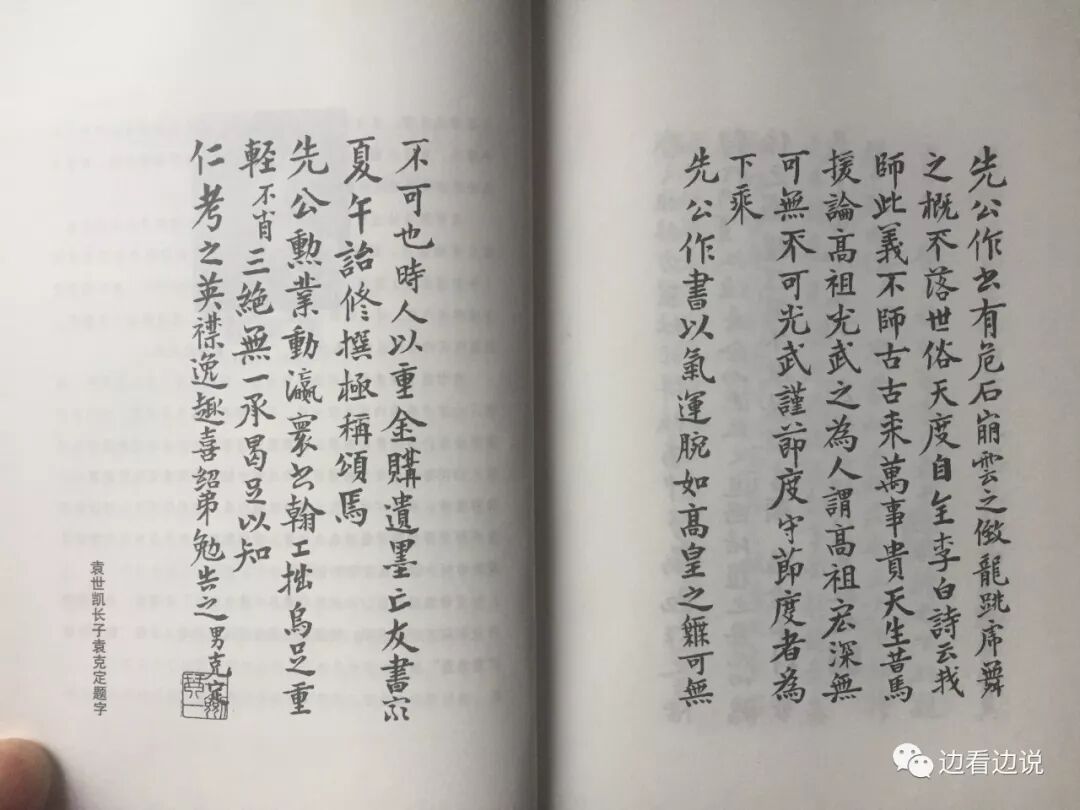 先公作书有危石崩雲之儆龍跳虎舞
之概不落世俗天度自全李白詩云我
師此義不師古古来萬事貴天生昔馬
援論高祖光武之為人謂高祖宏深無
可無不可光武謹節度守節度者為
下乘
先公作書以氣運腕如高皇之無可無
不可也時人以重金購遺墨亡友書家
夏午詒修撰極稱頌焉
先公勳業動瀛寰书翰工拙烏足重
輕不肖三絕無一承曷足以知
仁考之英襟逸趣喜紹弟勉告之男克定
袁世凯长子袁克定题字
边看边说